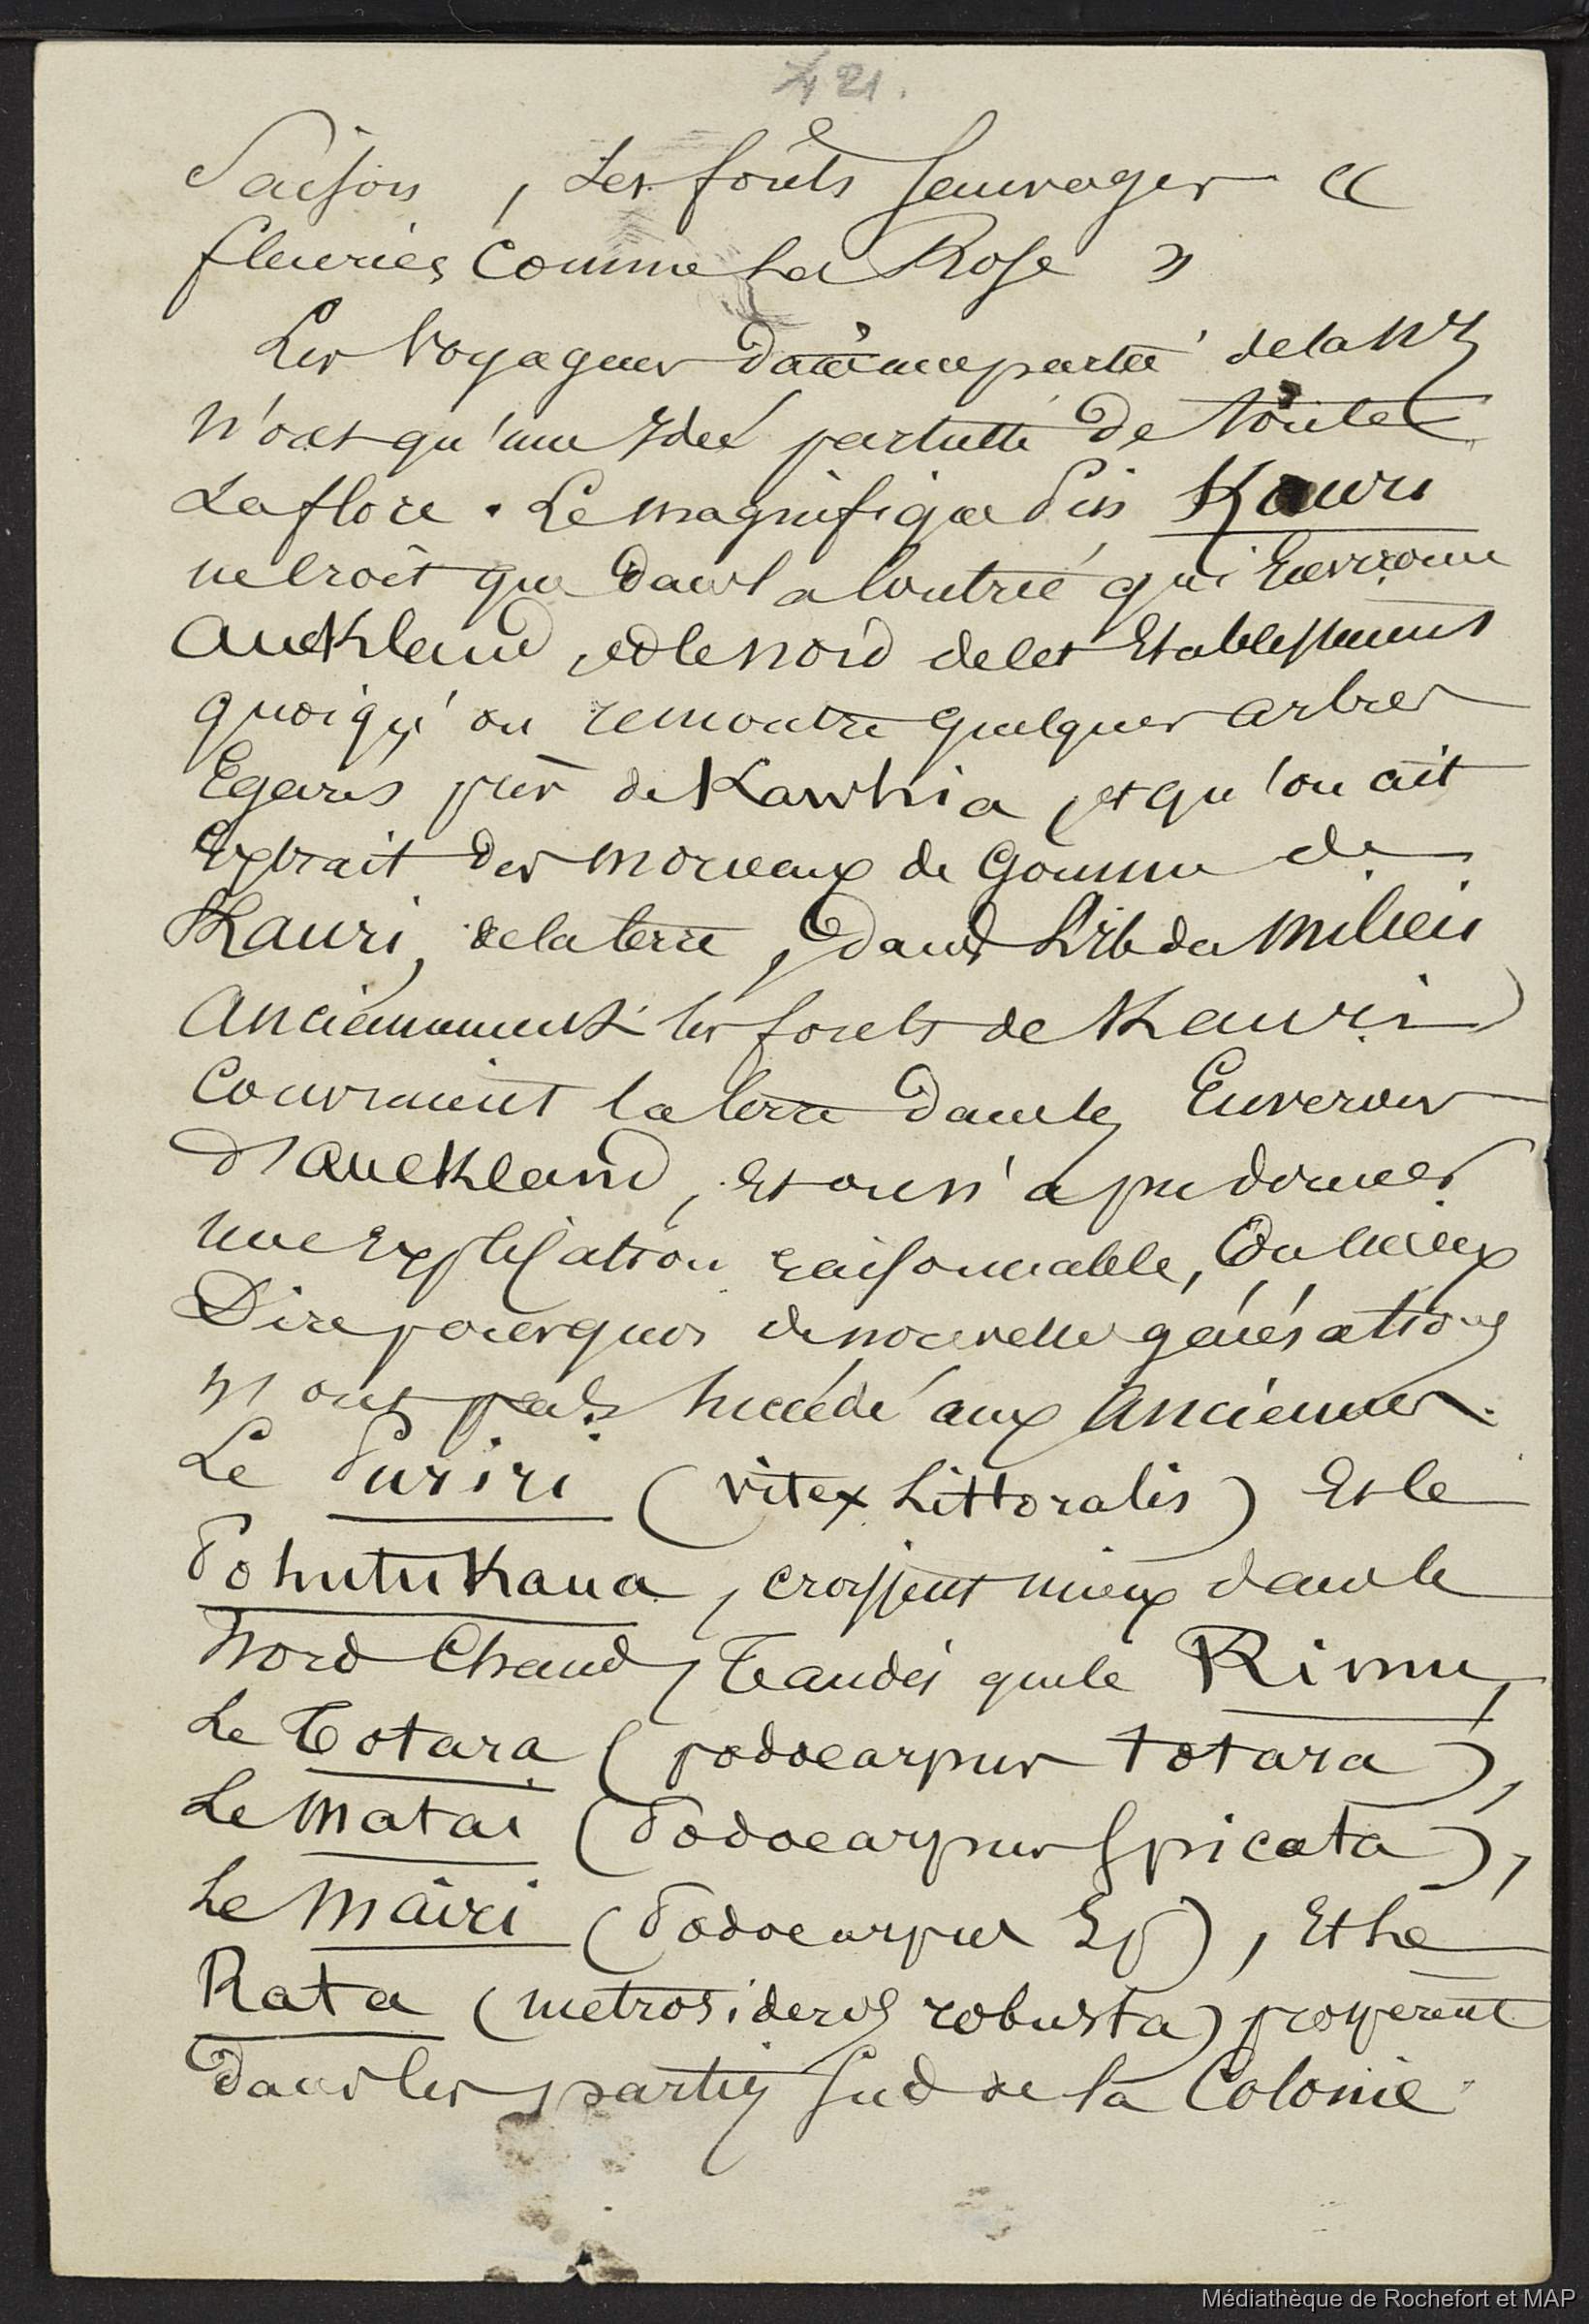 421.
Saison, les forêts sauvages «
fleuries comme la Rose »
Les voyageurs dans une partie de la NZ
n'ont qu'une Idée partielle de toute
La flore. Le magnifique Pin Kauri
ne croît que dans la Contrée qui Environne
Auckland, et le nord de cet Etablissement
quoiqu'on rencontre quelques arbres
Egarés près de Kawhia, et qu'on ait
Extrait des morceaux de Gomme de
Kauri, de la terre, dans L'île du Milieu
Anciennement les forêts de Kauri
Couvraient la terre dans les Environs
d'Auckland, Et on n'a pu donner
une Explication raisonnable, Ou mieux
Dire pourquoi de nouvelles générations
n'ont pas succédé aux Anciennes.
Le Puriri (vitex Littoralis) Et le
Pohutukaua, croissent mieux dans le
Nord Chaud, Tandis que le Rimu,
Le Totara (podocarpus totara),
Le Matai (Podocarpus Spicata),
Le Mairi (Podocarpus Sp), Et le
Rata (metrosideros robusta) prospèrent
Dans les parties Sud de la Colonie
Médiathèque de Rochefort et MAP